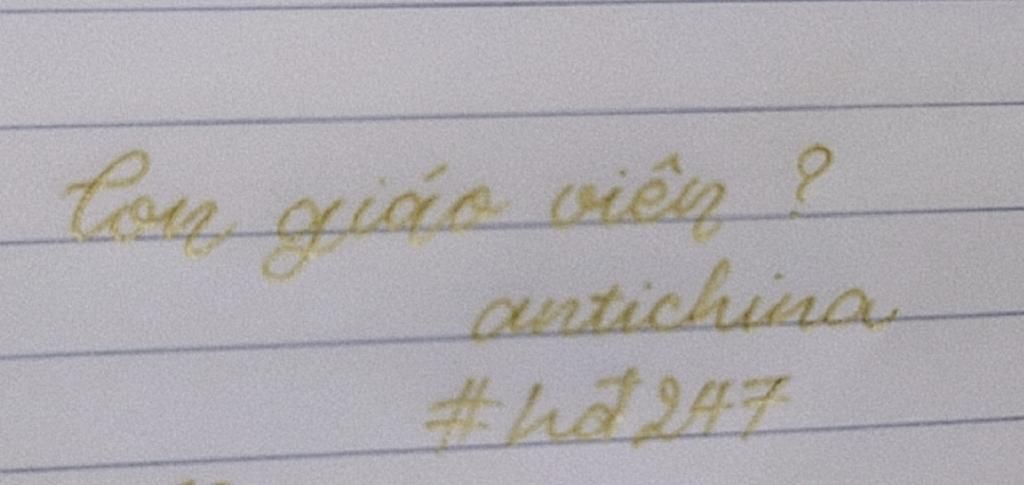 Con giáo viên ?
antichina
#hđ247